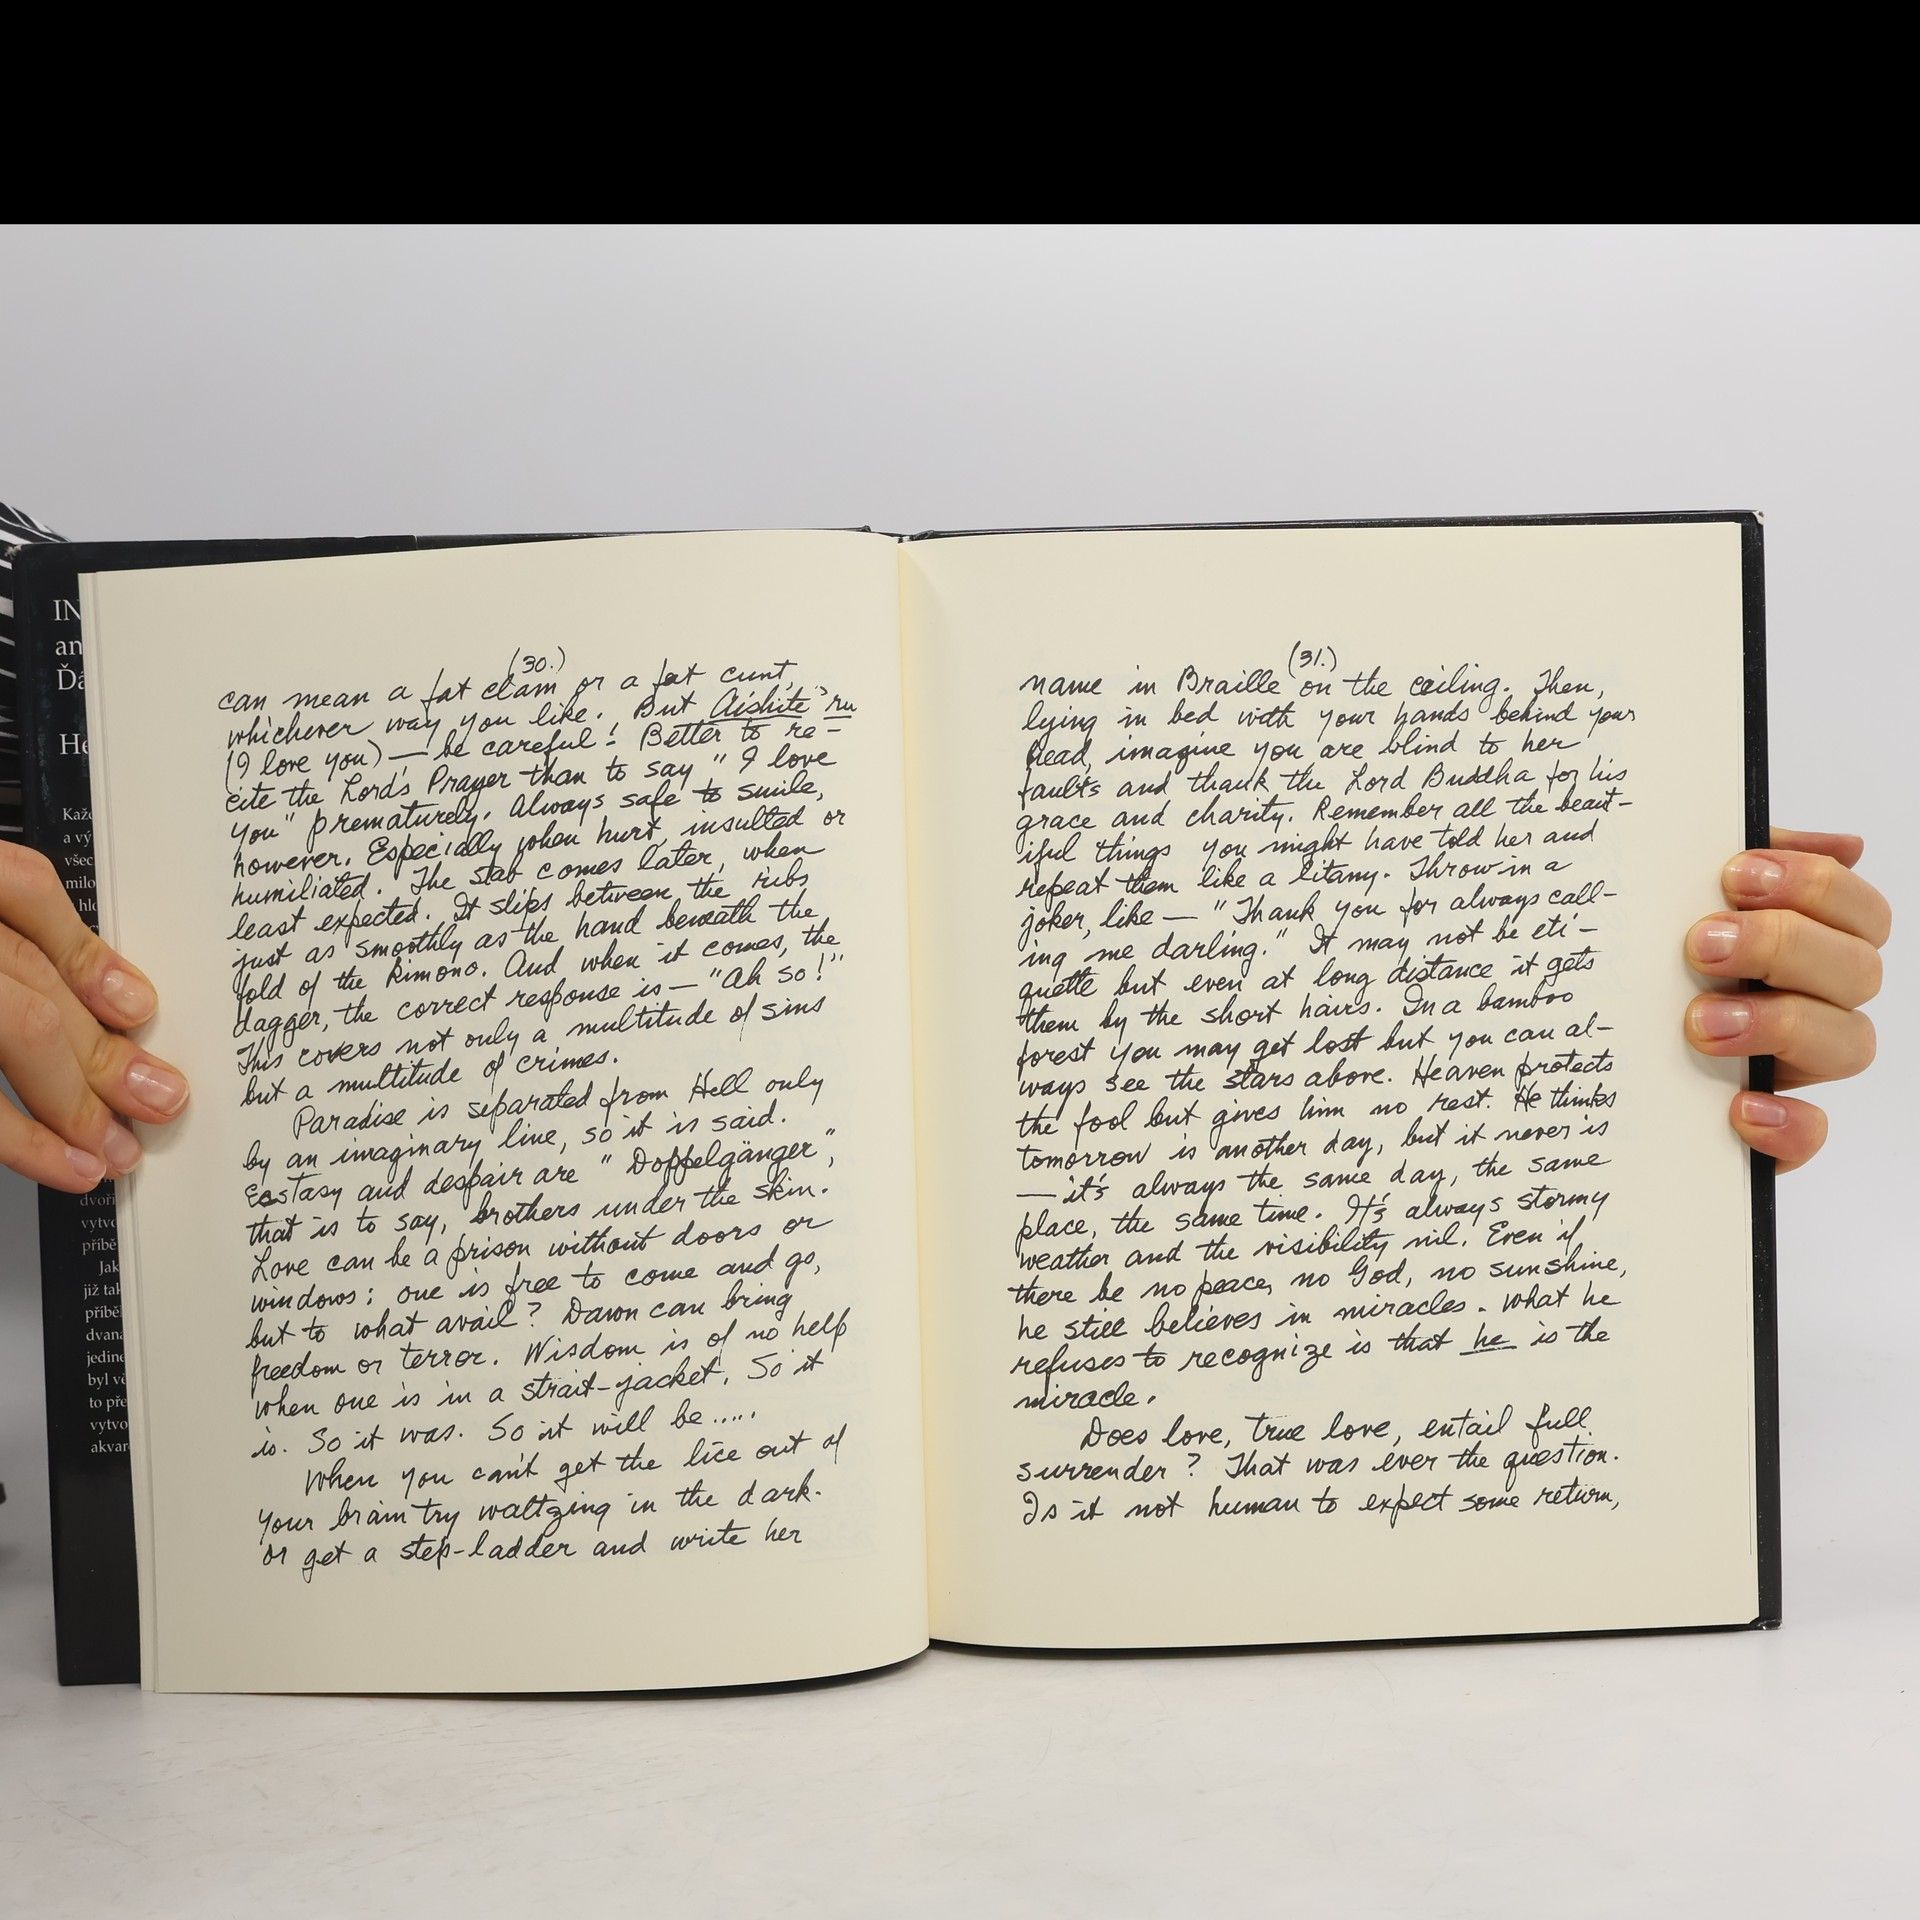 IN
an
Ďá
He
Každ
a vý
všec
milo
hlo
dvoři
vytvo
příbě
Jak
již tak
příběh
dvaná
jedine
byl vě
to pře
vytvo
akvar
(30.)
can mean a fat clam or a fat cunt,
whichever way you like. But Aishite ru
(I love you) — be careful! Better to re-
cite the Lord's Prayer than to say "I love
you" prematurely. Always safe to smile,
however. Especially when hurt, insulted or
humiliated. The stab comes later, when
least expected. It slips between the ribs
just as smoothly as the hand beneath the
fold of the Kimono. And when it comes, the
dagger, the correct response is — "Ah so!"
This covers not only a multitude of sins
but a multitude of crimes.
Paradise is separated from Hell only
by an imaginary line, so it is said.
Ecstasy and despair are "Doppelgänger",
that is to say, brothers under the skin.
Love can be a prison without doors or
windows: one is free to come and go,
but to what avail? Dawn can bring
freedom or terror. Wisdom is of no help
when one is in a strait-jacket. So it
is. So it was. So it will be.....
When you can't get the lice out of
your brain try waltzing in the dark.
or get a step-ladder and write her
(31.)
name in Braille on the ceiling. Then,
lying in bed with your hands behind your
head, imagine you are blind to her
faults and thank the Lord Buddha for his
grace and charity. Remember all the beaut-
iful things you might have told her and
repeat them like a litany. Throw in a
joker, like — "Thank you for always call-
ing me darling." It may not be eti-
quette but even at long distance it gets
them by the short hairs. In a bamboo
forest you may get lost but you can al-
ways see the stars above. Heaven protects
the fool but gives him no rest. He thinks
tomorrow is another day, but it never is
— it's always the same day, the same
place, the same time. It's always stormy
weather and the visibility nil. Even if
there be no peace, no God, no sunshine,
he still believes in miracles. What he
refuses to recognize is that he is the
miracle.
Does love, true love, entail full
surrender? That was ever the question.
Is it not human to expect some return,